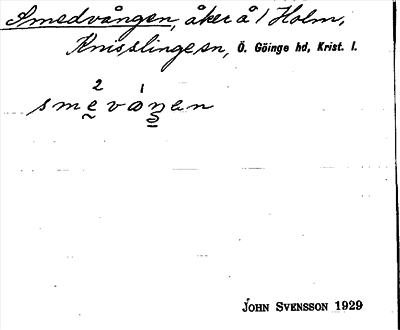 Smedvången, åker å 1 Holm,
Knisslinge sn, Ö. Göinge hd, Krist. l.
2 1
smevaŋen
JOHN SVENSSON 1929